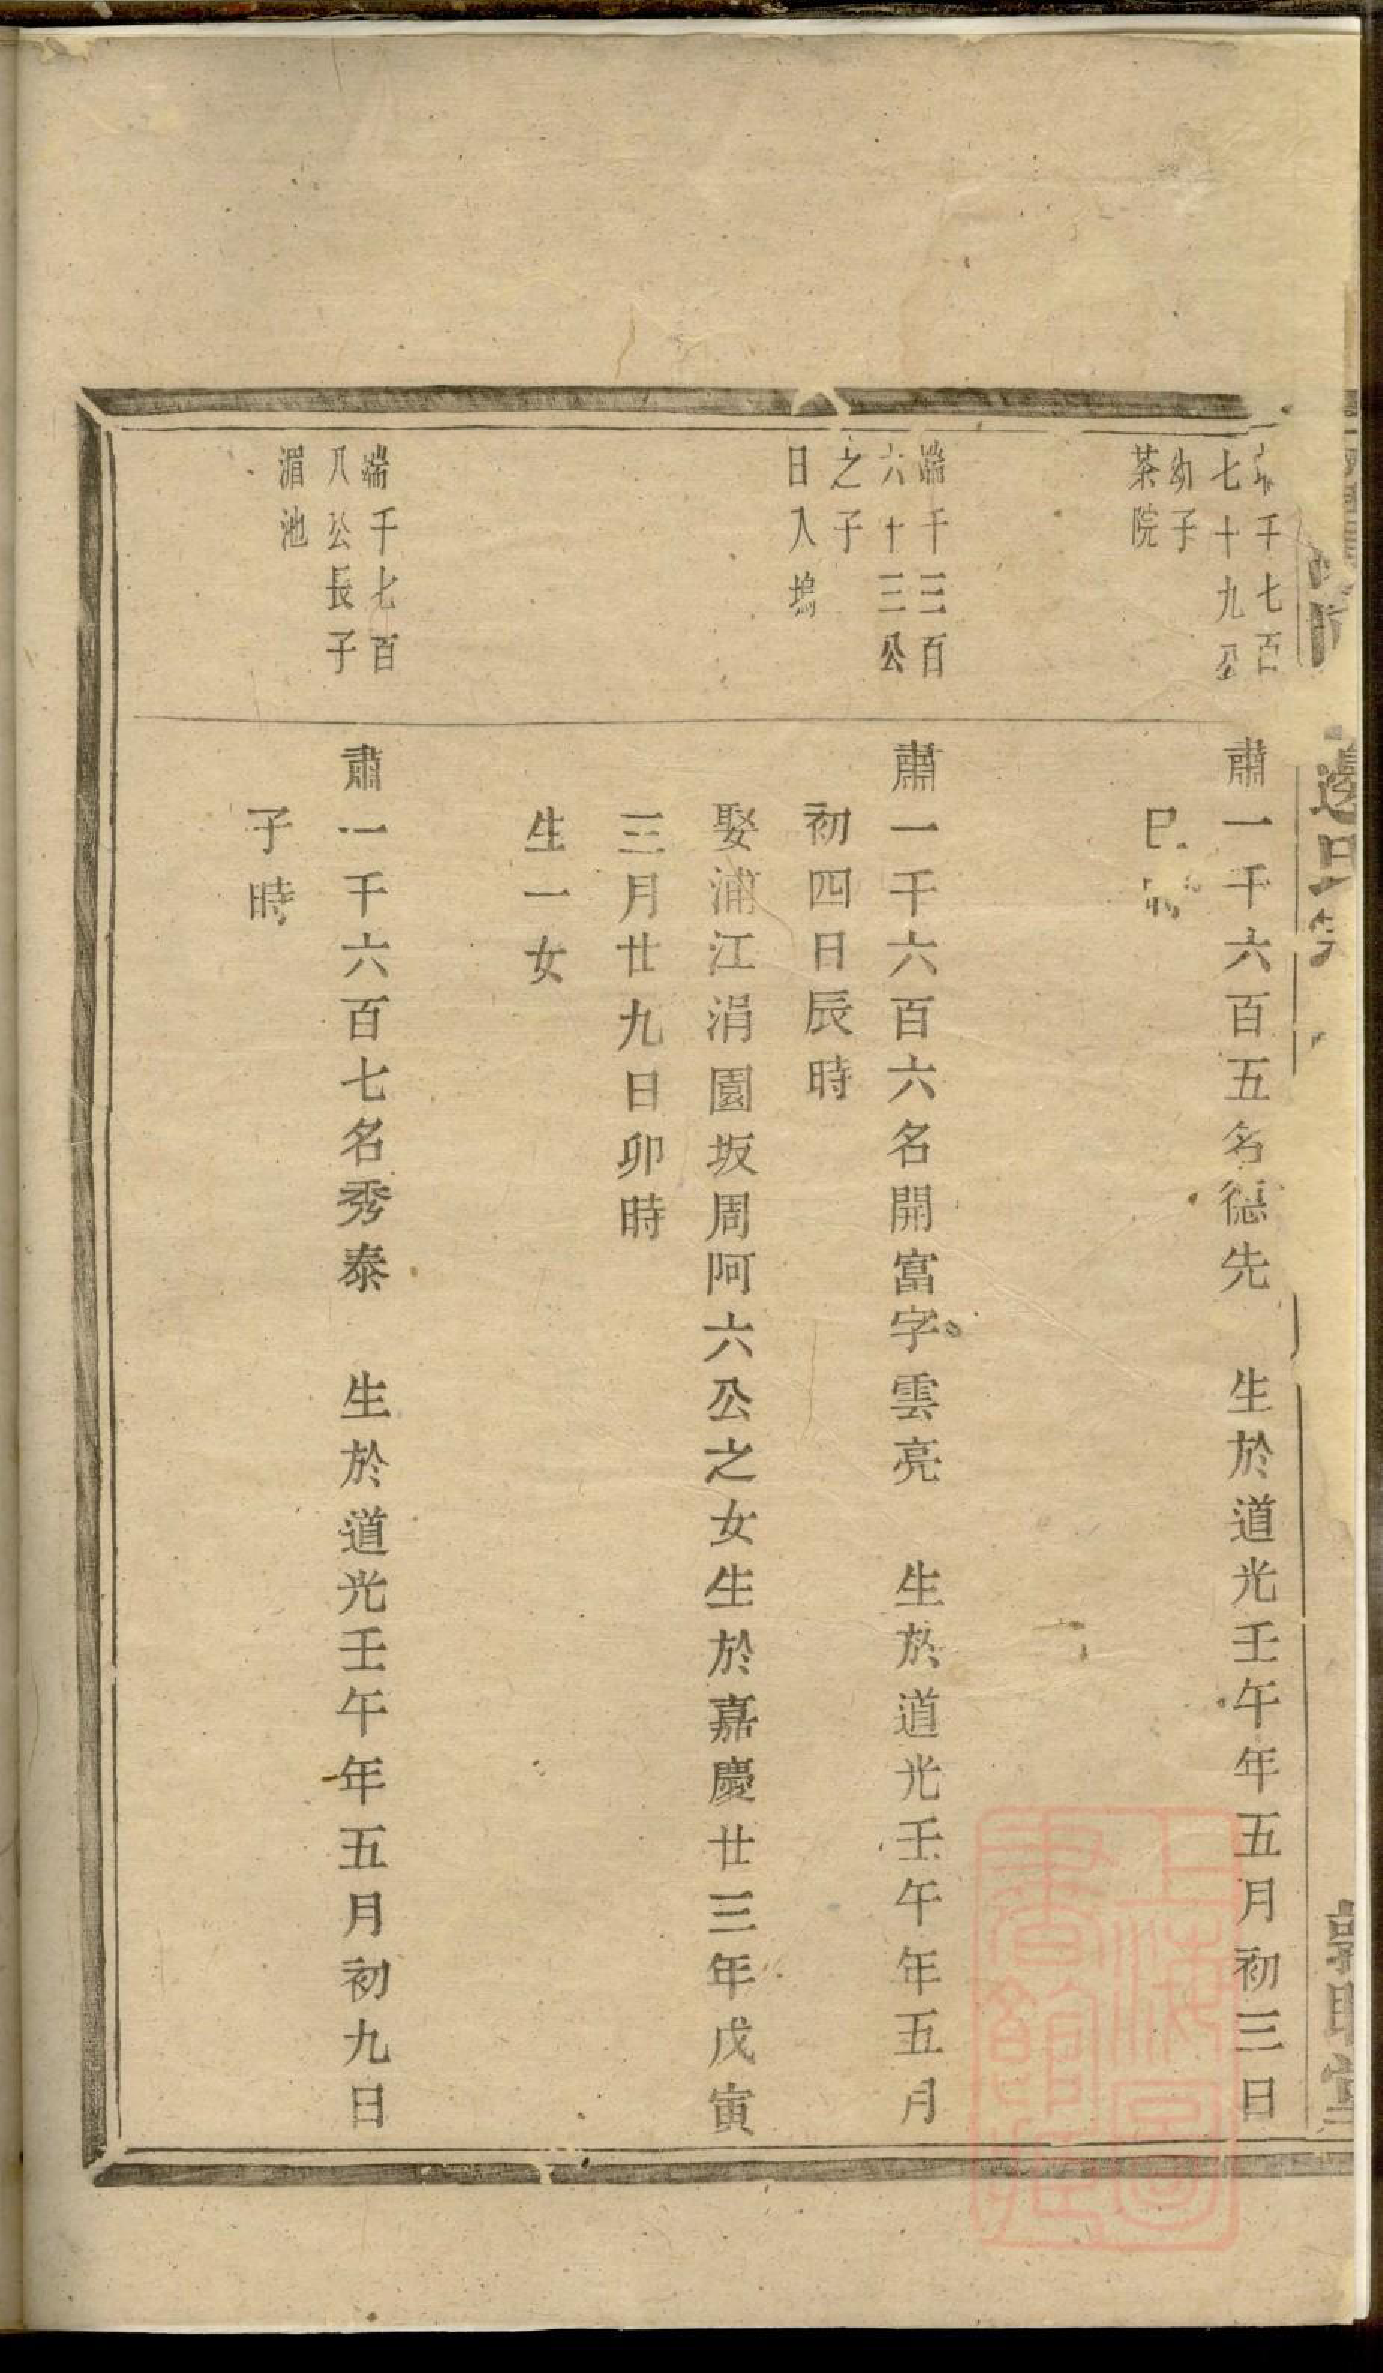 千七百
七十九公
幼子
茶院
肅一千六百五名德先　生於道光壬午年五月初三日
巳
端千三百
六十三公
之子
日入塢
肅一千六百六名開富字雲亮　生於道光壬午年五月
初四日辰時
娶浦江涓園坂周阿六公之女生於嘉慶廿三年戊寅
三月廿九日卯時
生一女
端千七百
八公長子
湄池
肅一千六百七名秀泰　生於道光壬午年五月初九日
子時
邊氏宗
上海圖
書館藏